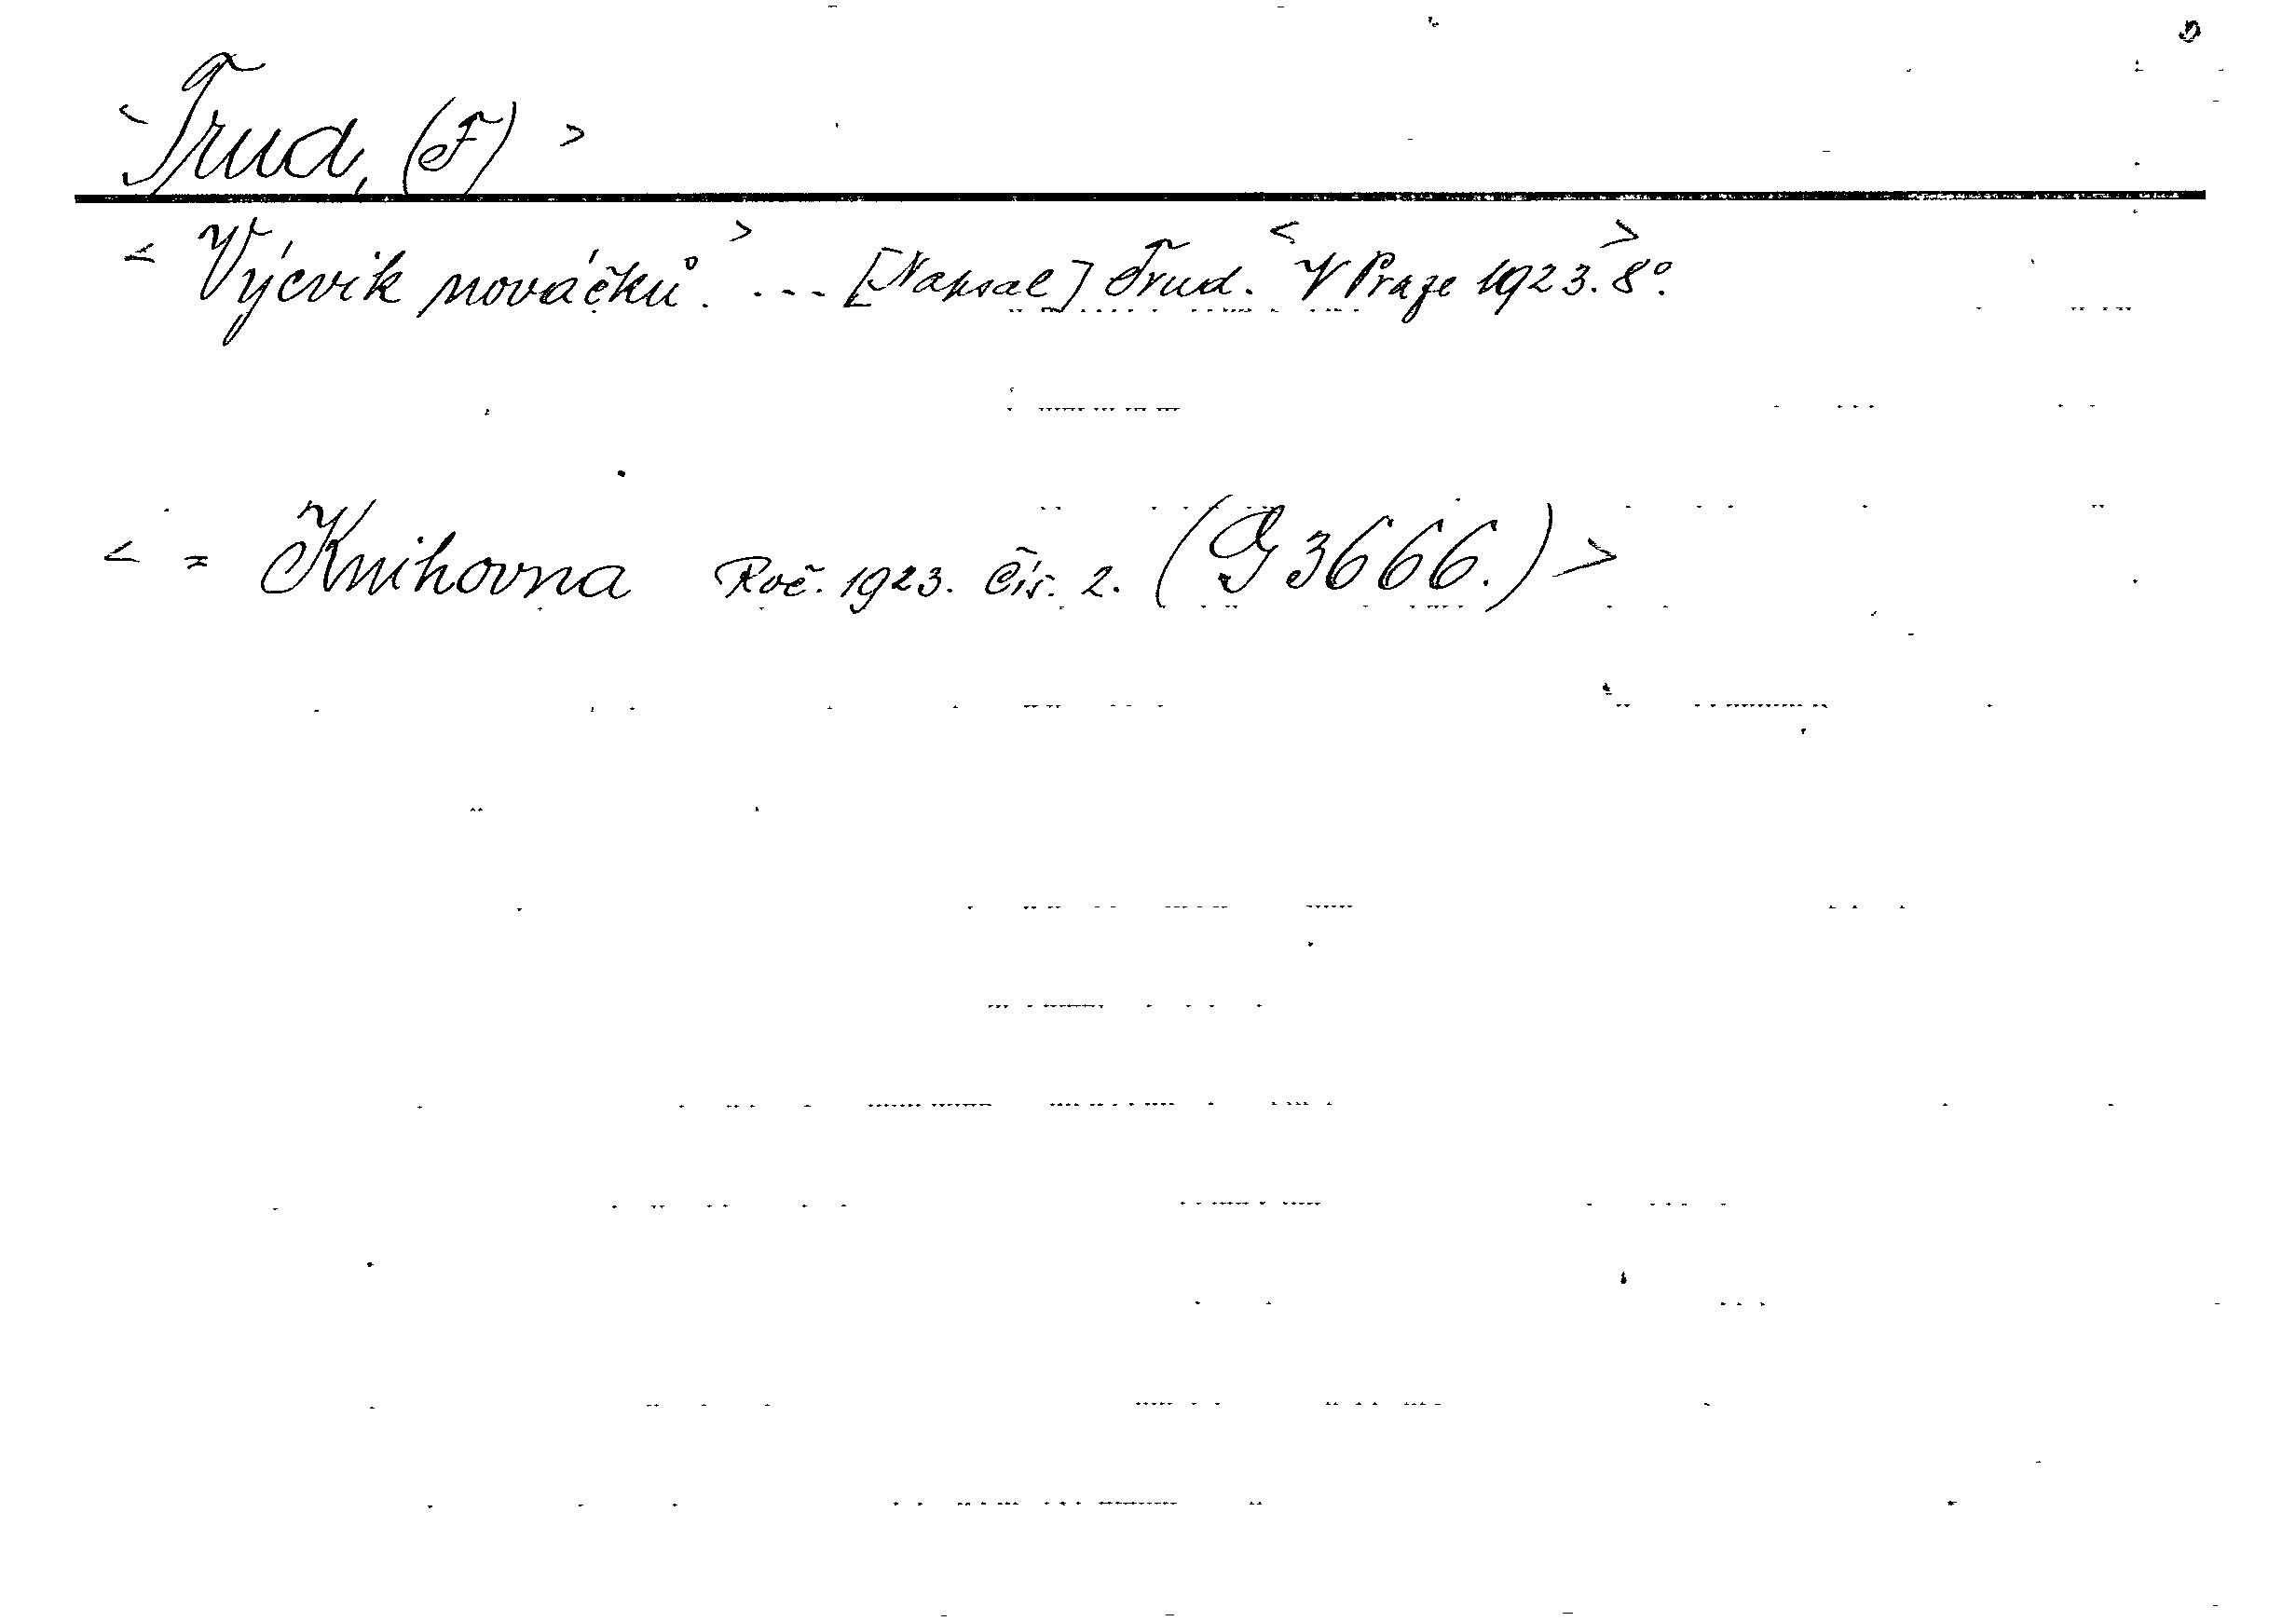 <Trud, (F)>
<Výcvik nováčků.> ... [Napsal] Trud. <V Praze 1923.> 8°.
< = Knihovna Roč. 1923. Čís. 2. (G 3666.)>